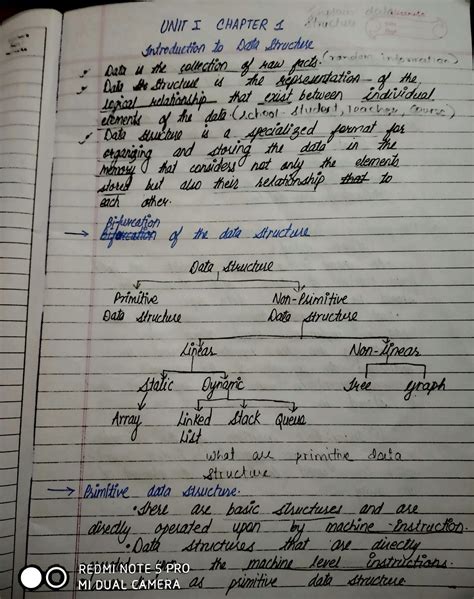 UNIT I CHAPTER 1
Structure
Introduction to Data Structure
Data is the collection of raw facts. (random information)
Data Structure is the representation of the
logical relationship that exist between individual
elements of the data. (school - student, teacher, course)
Data structure is a specialized format for
organging and storing the data in the
memory that considers not only the elements
stored but also their relationship that to
each other.
Bifurcation
→ Bifurcation of the data structure
Data Structure
Primitive Non-Primitive
Data Structure Data Structure
Linear Non-Linear
Static Dynamic Tree Graph
Array Linked Stack Queue
List
what are primitive data
structure
→ Primitive data structure.
• There are basic structures and are
directly operated upon by machine instruction.
• Data structures that are directly
upon the machine level instructions.
as primitive data structure
REDMI NOTE 5 PRO
MI DUAL CAMERA